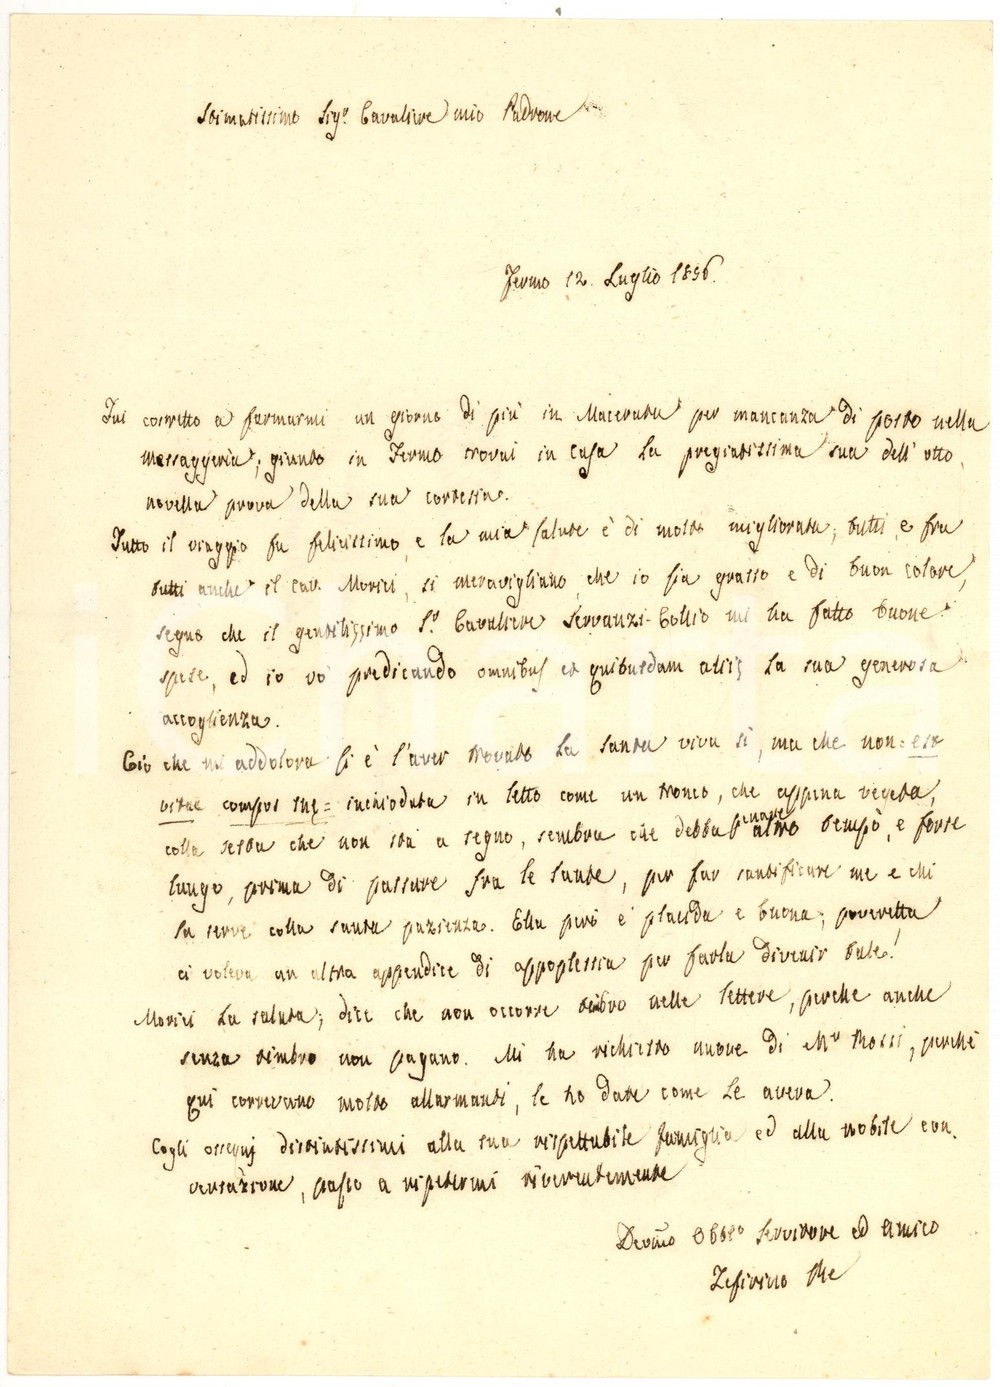 Stimatissimo Sigr. Cavaliere mio Padrone
Fermo 12. Luglio 1856.
Fui costretto a fermarmi un giorno di più in Macerata per mancanza di posto nella
messaggeria; giunto in Fermo trovai in casa la pregiatissima sua dell' otto,
novella prova della sua cortesia.
Tutto il viaggio fu felicissimo, e la mia salute è di molto migliorata; tutti, e fra
tutti anche il Cav. Morici, si meravigliano, che io sia grasso e di buon colore,
segno che il gentilissimo Sr. Cavaliere Servanzi-Collio mi ha fatto buone
spese, ed io vo' predicando omnibus et quibusdam aliis la sua generosa
accoglienza.
Ciò che mi addolora si è l'aver trovato la Santa viva sì, ma che non = est
vitae compos suae = inchiodata in letto come un tronco, che appena vegeta,
colla testa che non sta a segno, sembra che debba penare altro tempo, e forse
lungo, prima di passare fra le sante, per far santificare me e chi
la serve colla santa pazienza. Ella però è placida e buona; poveretta
ci voleva un altra appendice di appoplessia per farla divenir tale!
Morici la saluta; dice che non occorre timbro nelle lettere, perche anche
senza timbro non pagano. Mi ha richiesto nuove di Mr Rossi, perchè
qui correvano molto allarmanti, le ho date come le aveva.
Cogli ossequj distintissimi alla sua rispettabile famiglia ed alla nobile con-
versazione, passo a ripetermi riverentemente
Devmo Obblo Servitore ed Amico
Zefirino Re